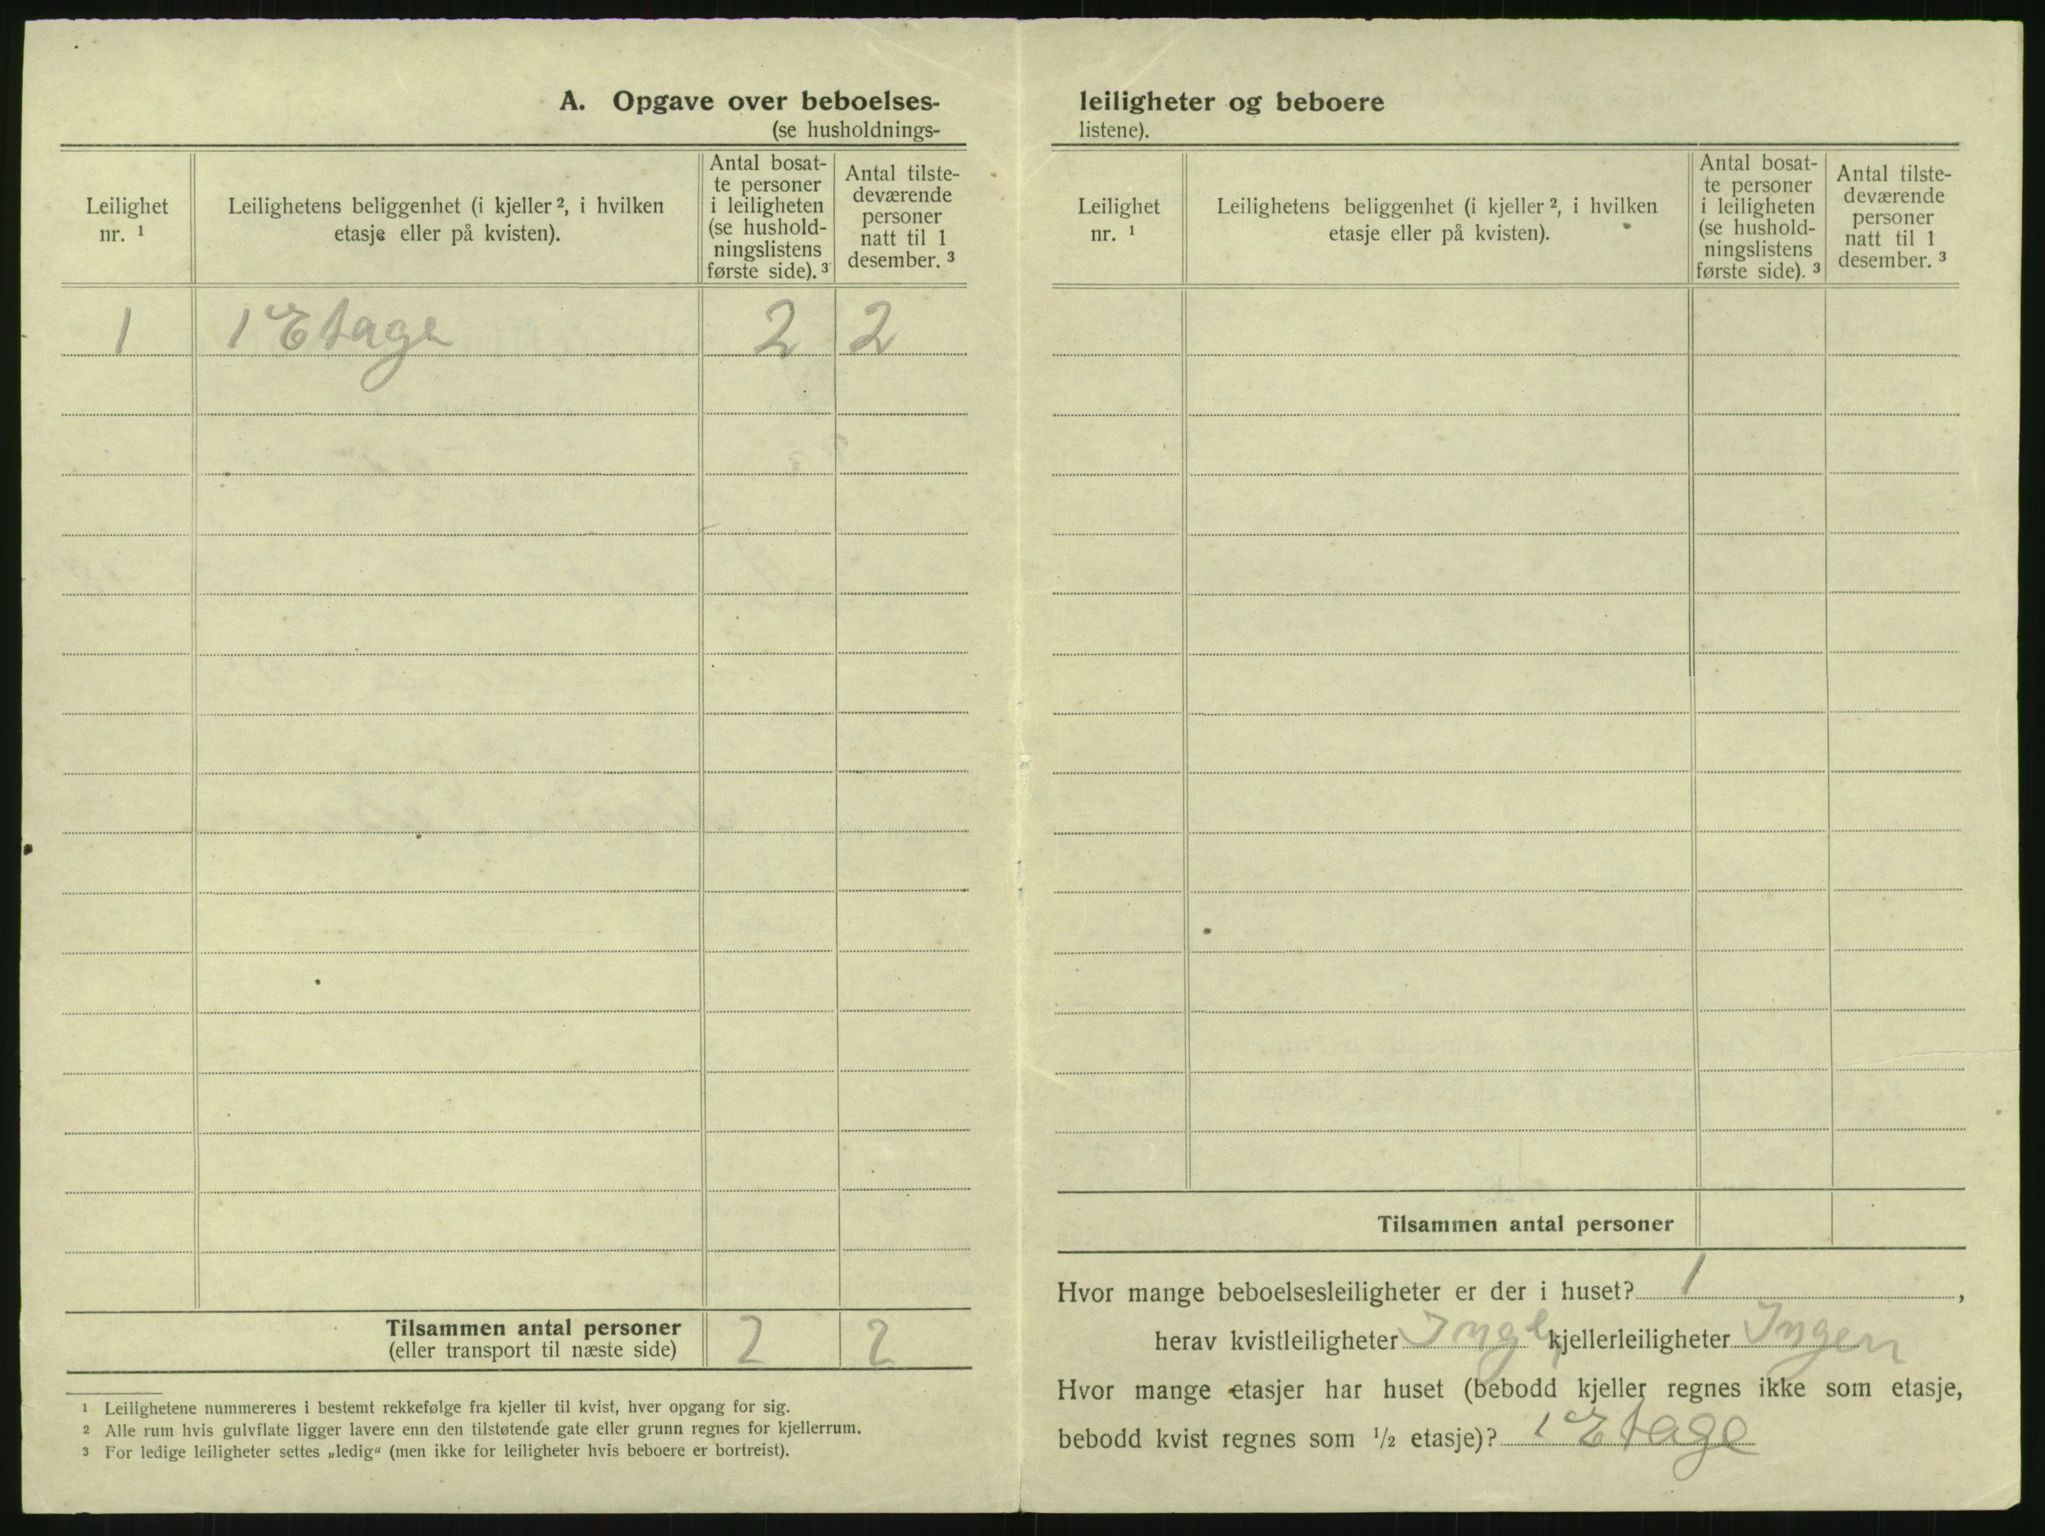 A. Opgave over beboelses-
(se husholdnings-
Leilighet nr. ¹
Leilighetens beliggenhet (i kjeller ², i hvilken etasje eller på kvisten).
Antal bosat-
te personer
i leiligheten
(se hushold-
ningslistens
første side). ³
Antal tilste-
deværende
personer
natt til 1
desember. ³
1 1 Etage 2 2
Tilsammen antal personer 2 2
(eller transport til næste side)
¹ Leilighetene nummereres i bestemt rekkefølge fra kjeller til kvist, hver opgang for sig.
² Alle rum hvis gulvflate ligger lavere enn den tilstøtende gate eller grunn regnes for kjellerrum.
³ For ledige leiligheter settes „ledig“ (men ikke for leiligheter hvis beboere er bortreist).
leiligheter og beboere
listene).
Leilighet nr. ¹
Leilighetens beliggenhet (i kjeller ², i hvilken etasje eller på kvisten).
Antal bosat-
te personer
i leiligheten
(se hushold-
ningslistens
første side). ³
Antal tilste-
deværende
personer
natt til 1
desember. ³
Tilsammen antal personer
Hvor mange beboelsesleiligheter er der i huset? 1,
herav kvistleiligheter kjellerleiligheter Ingen
Hvor mange etasjer har huset (bebodd kjeller regnes ikke som etasje,
bebodd kvist regnes som ½ etasje)? 1 Etage